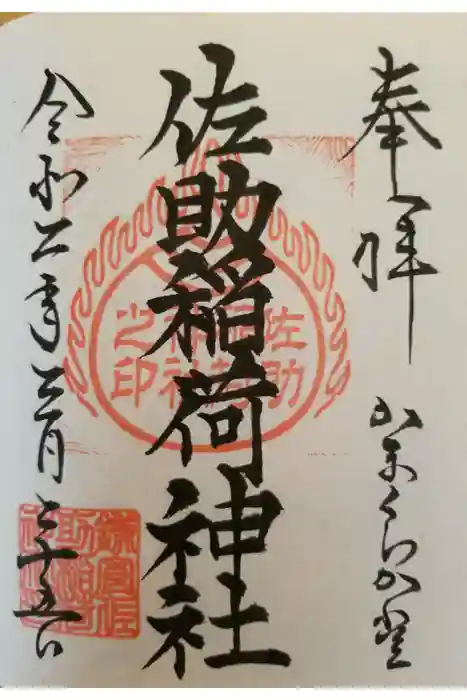 奉拝
かまくら
佐助稲荷神社
佐助稲荷神社之印
令和二年三月二十五日